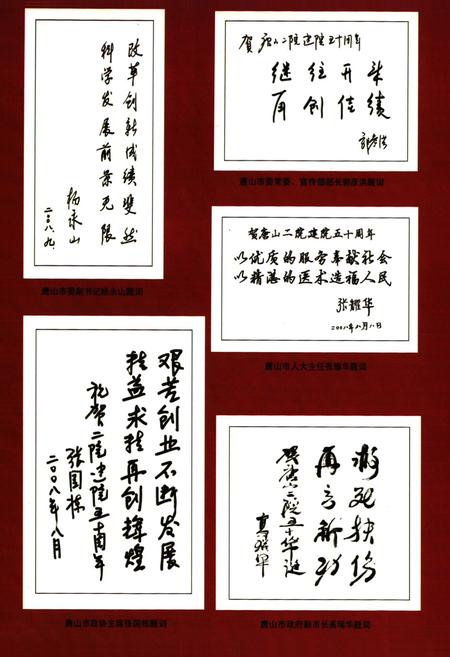 改革创新成绩斐然
科学发展前景无限
杨永山
二〇〇八.九.
唐山市委副书记杨永山题词
贺唐山二院建院五十周年
继往开来
再创佳绩
郭彦洪
唐山市委常委、宣传部部长郭彦洪题词
贺唐山二院建院五十周年
以优质的服务奉献社会
以精湛的医术造福人民
张耀华
二〇〇八年八月八日
唐山市人大主任张耀华题词
艰苦创业不断发展
精益求精再创辉煌
祝贺二院建院五十周年
张国栋
二〇〇八年八月
唐山市政协主席张国栋题词
救死扶伤
再立新功
贺唐山二院五十华诞
高瑞华
唐山市政府副市长高瑞华题词